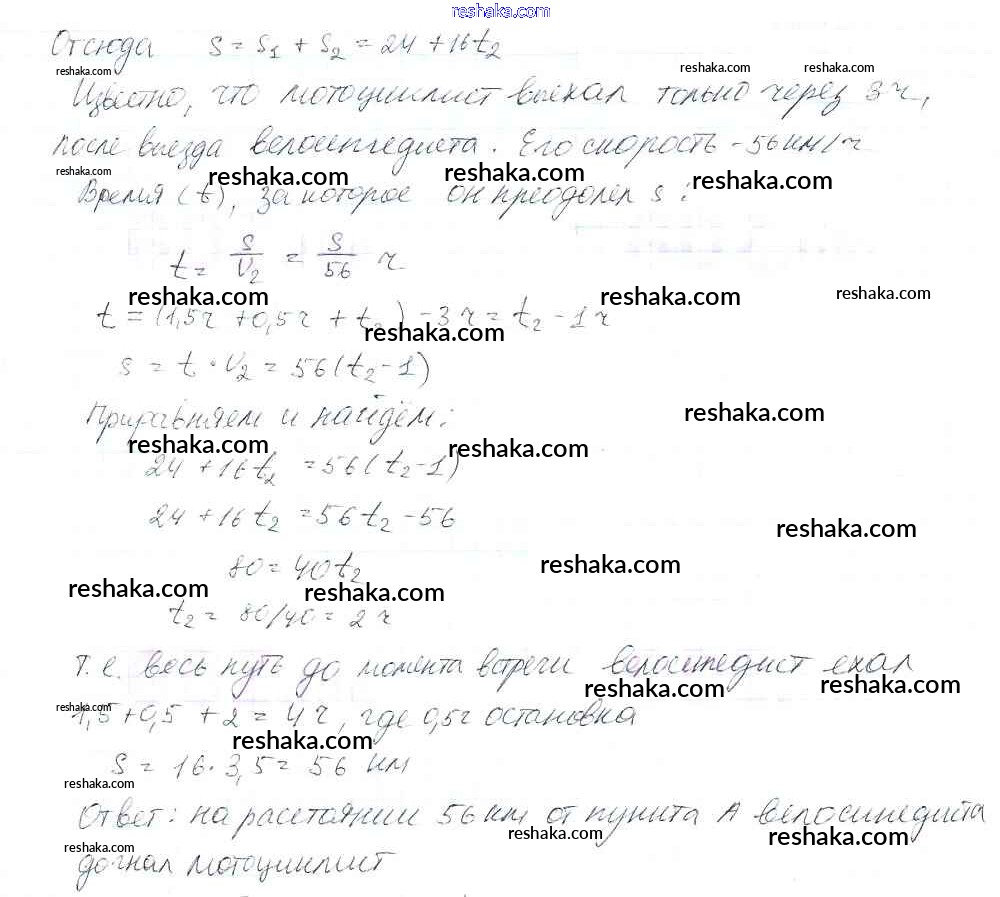 reshaka.com
Отсюда s = s1 + s2 = 24 + 16t2
reshaka.com reshaka.com reshaka.com
Известно, что мотоциклист выехал только через 3ч,
после выезда велосипедиста. Его скорость - 56 км/ч
reshaka.com reshaka.com reshaka.com reshaka.com
Время (t), за которое он преодолел s:
t = s/v2 = s/56 ч
reshaka.com reshaka.com reshaka.com
t = (1,5ч + 0,5ч + t2) - 3ч = t2 - 1ч
reshaka.com
s = t · v2 = 56(t2 - 1)
Приравняем и найдём:
reshaka.com
reshaka.com reshaka.com
24 + 16t2 = 56(t2 - 1)
24 + 16t2 = 56t2 - 56
reshaka.com
80 = 40t2
reshaka.com
reshaka.com reshaka.com
t2 = 80/40 = 2 ч
Т.е. весь путь до момента встречи велосипедист ехал
reshaka.com reshaka.com
reshaka.com
1,5 + 0,5 + 2 = 4 ч, где 0,5ч остановка
reshaka.com
s = 16 · 3,5 = 56 км
reshaka.com
Ответ: на расстоянии 56 км от пункта А велосипедиста
reshaka.com reshaka.com
reshaka.com
догнал мотоциклист